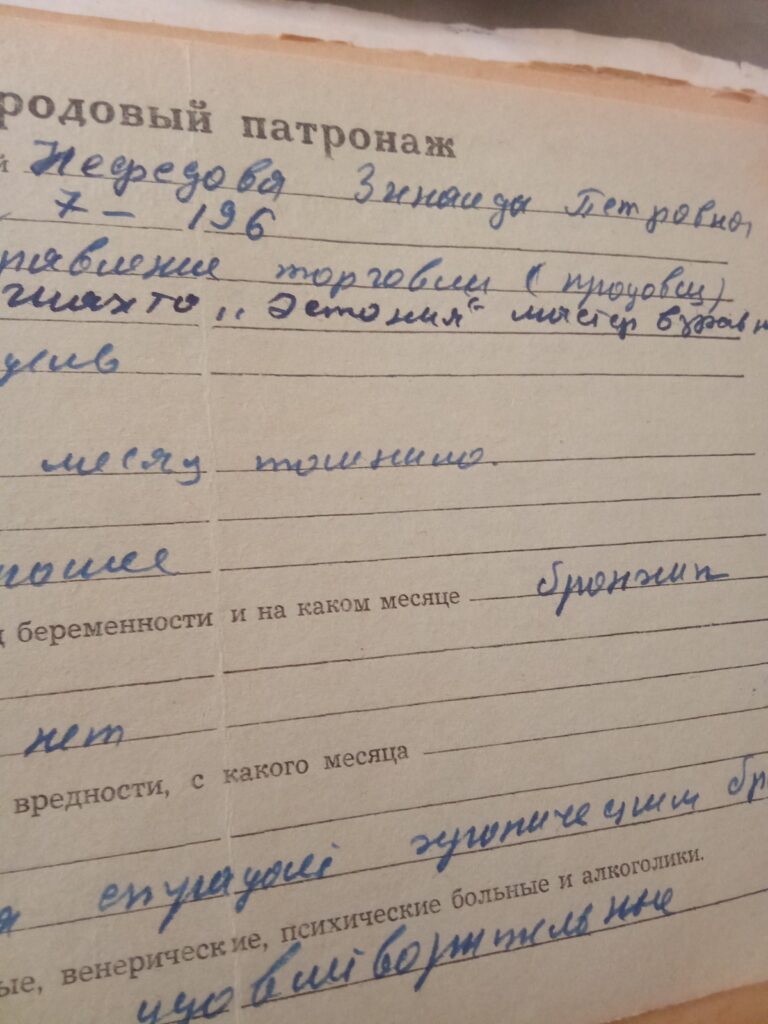 родовый патронаж
й Нефедова Зинаида Петровна
7 – 196
равления торговли (продовщ)
шахта „Эстония“ мастер взрывн
месяц тошнило.
рошее
д беременности и на каком месяце бронхит
нет
вредности, с какого месяца
я страдает хроническим бр
ые, венерические, психические больные и алкоголики.
удовлетворительные